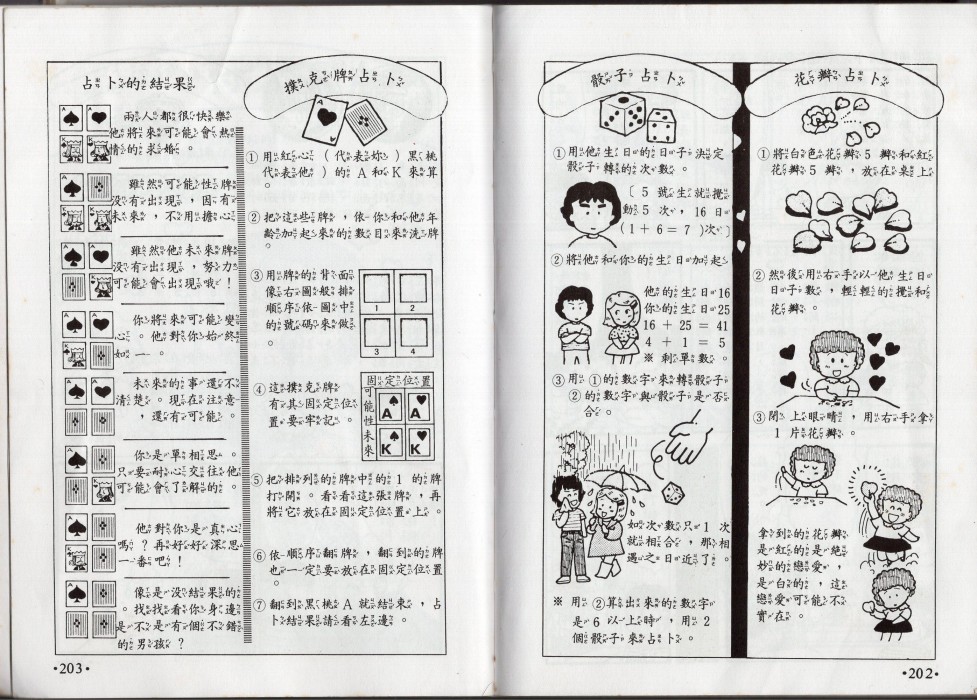 花瓣占卜
①將白色花瓣5瓣和紅
花瓣5瓣,放在桌上
。
②然後用右手以他生日
日子數,輕輕的攪和
花瓣。
③閉上眼睛,用右手拿
1片花瓣。
拿到的花瓣
是紅的是絕
妙的戀愛,
是白的,這
戀愛可能不
實在。
•202•
骰子占卜
①用他生日的日子決定
骰子轉的次數。
〔5號生就攪
動5次,16日
(1+6=7)次〕
②將他和你的生日加起
他的生日16
你的生日25
16+25=41
4+1=5
※剩單數。
③用①的數字來轉骰子
②的數字與骰子是否
合。
如次數只1次
就相合,那相
遇之日近了。
※用②算出來的數字
是6以上時,用2
個骰子來占卜。
撲克牌占卜
①用紅心(代表妳)黑桃
代表他)的A和K來算
。
②把這些牌,依你和他年
齡加起來的數目來洗牌
。
③用牌的背面
像右圖般排
順序依圖中
的號碼來做
。
1
2
3
4
④這撲克牌
有其固定位
置要牢記。
固定位置
可能性
未來
A
A
K
K
⑤把排列的牌中的1的牌
打開。看看這張牌,再
將它放在固定位置上。
⑥依順序翻牌,翻到的牌
也一定要放在固定位置
。
⑦翻到黑桃A就結束,占
卜結果請看左邊。
占卜的結果
兩人都很快樂
他將來可能會熱
情的求婚。
雖然可能性牌
沒有出現,因有
未來,不用擔心
雖然他未來牌
沒有出現,努力
可能會出現哦!
你將來可能變
心。他對你始終
如一。
未來的事還不
清楚。現在注意
,還有可能。
你是單相思。
只要耐心交往他
可能會了解的。
他對你是真心
嗎?再好好深思
一番吧!
像是沒結果的
。找找看你身邊
是不是有個不錯
的男孩?
•203•